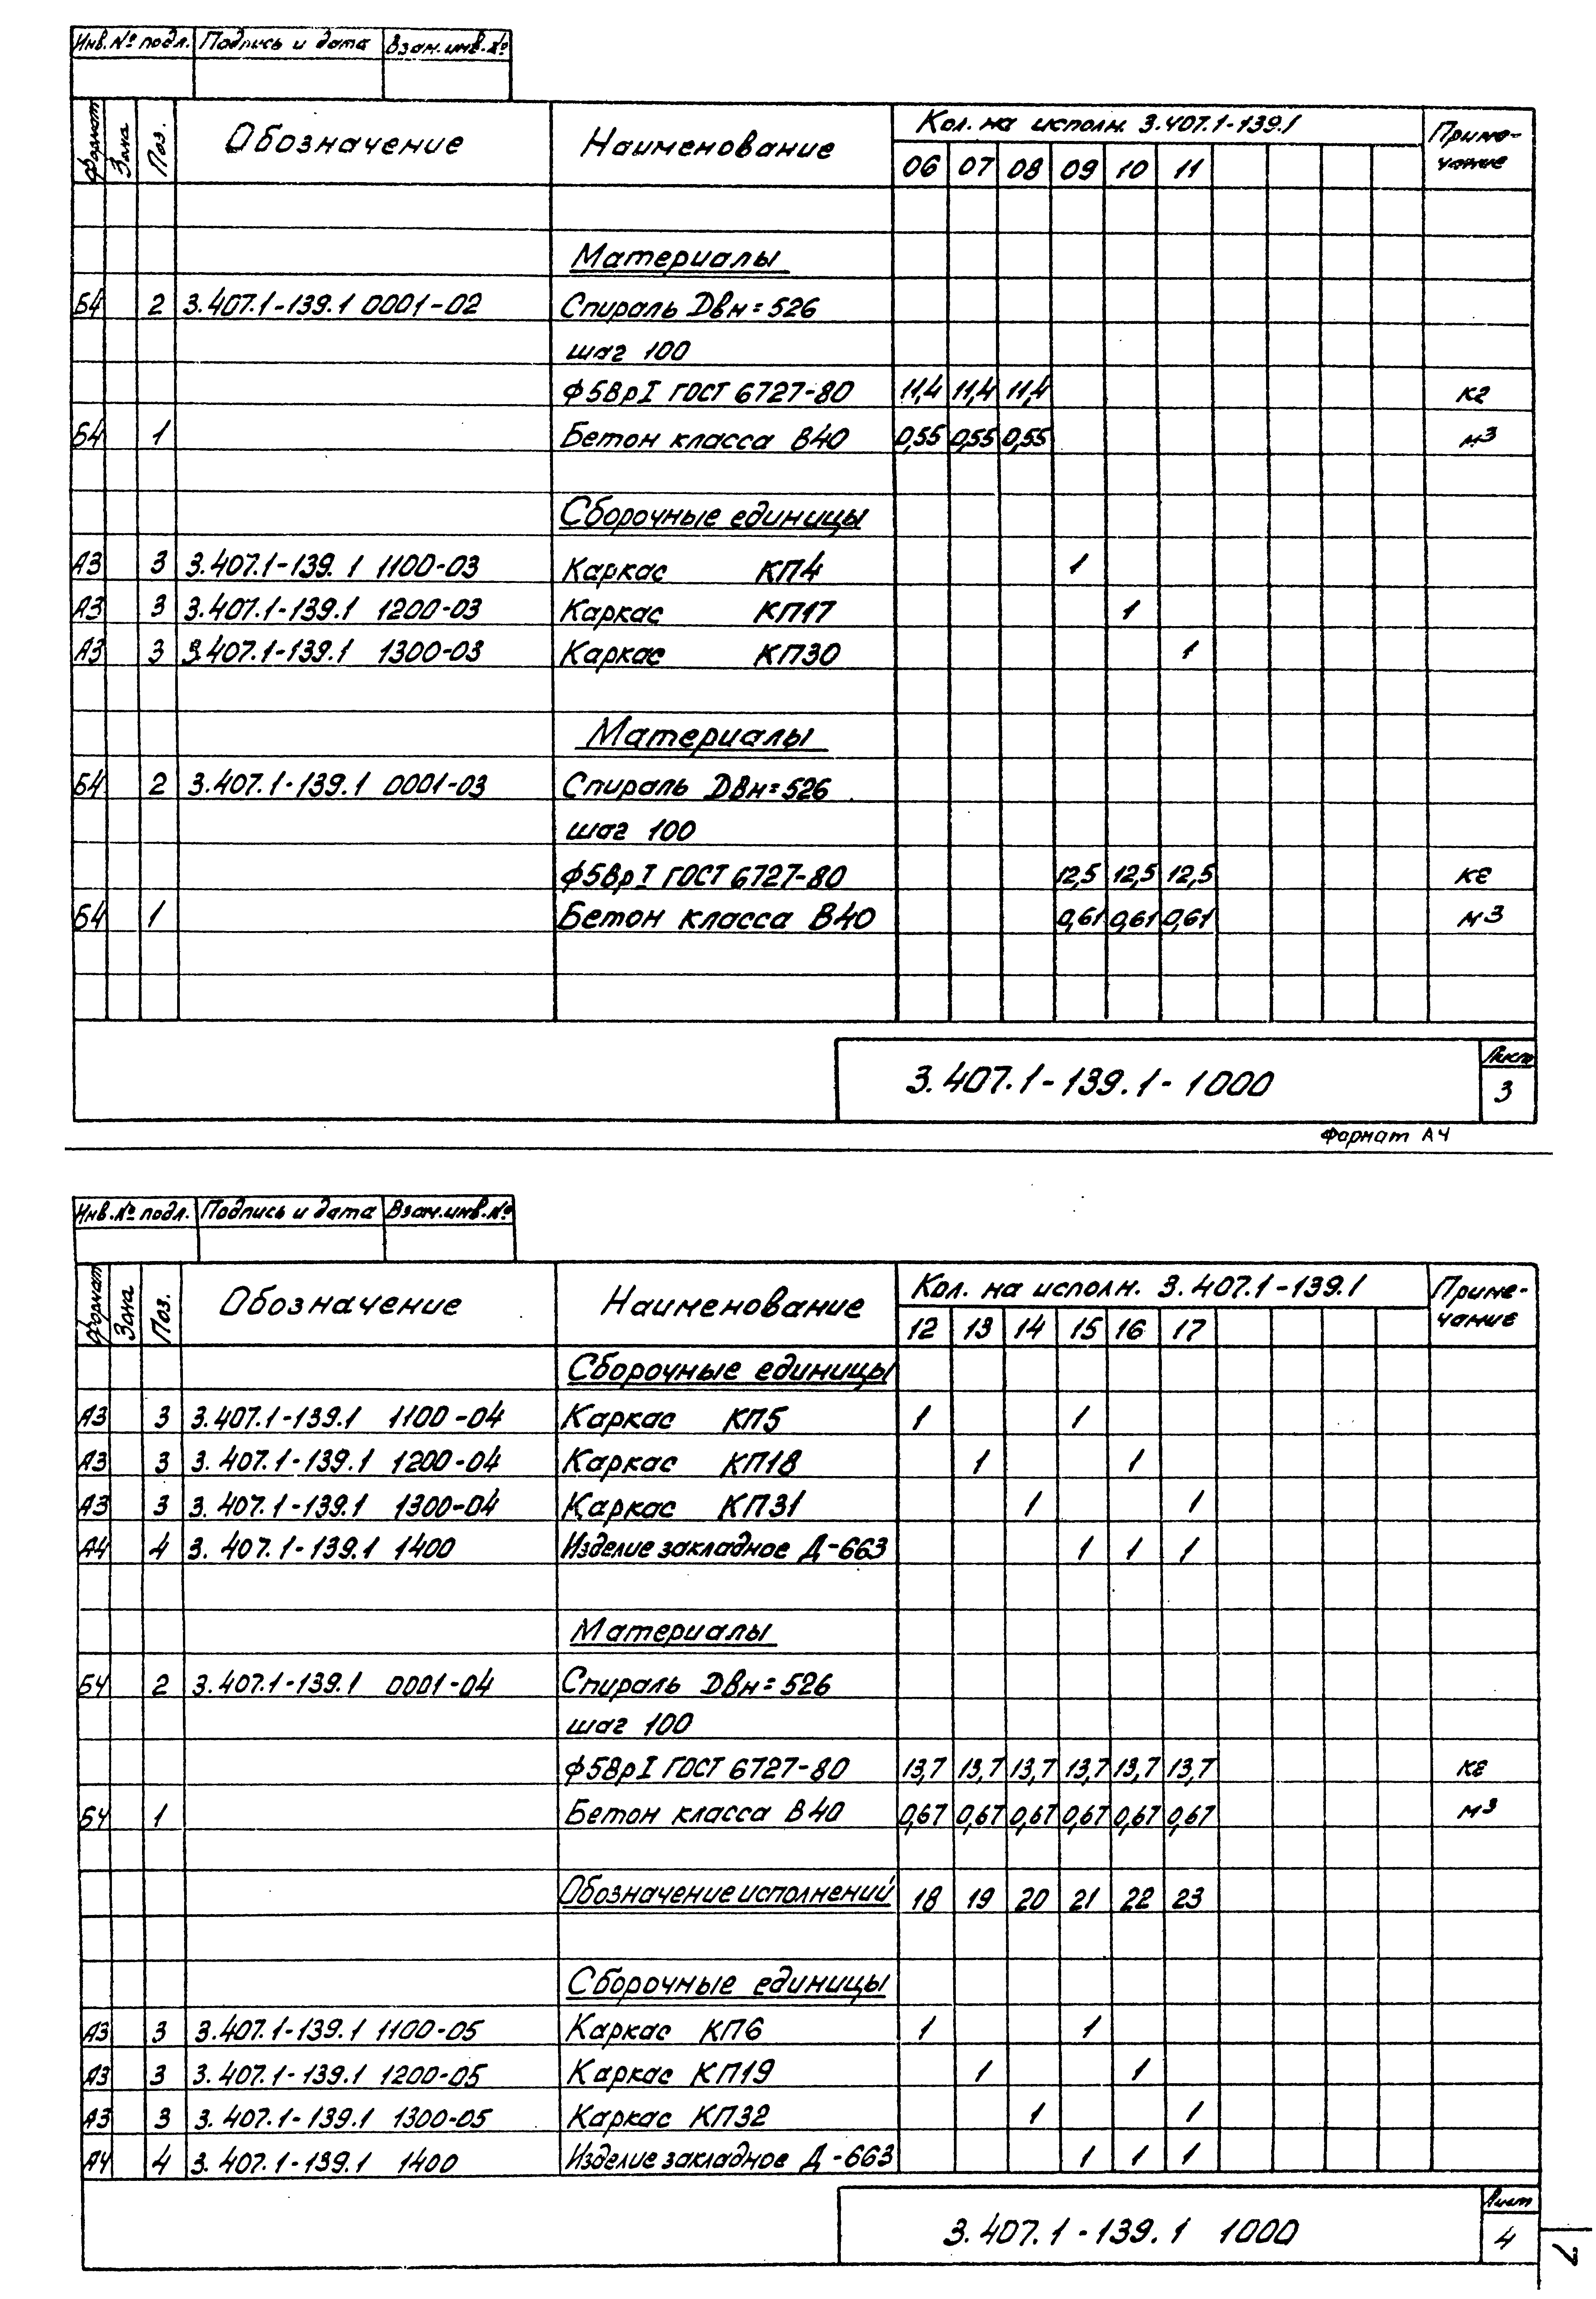 Инв.№ подл. Подпись и дата Взам.инв.№
Формат Зона Поз. Обозначение Наименование Кол. на исполн. 3.407.1-139.1 Приме-
чание
06 07 08 09 10 11
Материалы
Б4 2 3.407.1-139.1 0001-02 Спираль Двн=526
шаг 100
ф5ВрI ГОСТ 6727-80 11,4 11,4 11,4 кг
Б4 1 Бетон класса В40 0,55 0,55 0,55 м3
Сборочные единицы
А3 3 3.407.1-139.1 1100-03 Каркас КП4 1
А3 3 3.407.1-139.1 1200-03 Каркас КП17 1
А3 3 3.407.1-139.1 1300-03 Каркас КП30 1
Материалы
Б4 2 3.407.1-139.1 0001-03 Спираль Двн=526
шаг 100
ф5ВрI ГОСТ 6727-80 12,5 12,5 12,5 кг
Б4 1 Бетон класса В40 0,61 0,61 0,61 м3
3.407.1-139.1-1000 Лист
3
Формат А4
Инв.№ подл. Подпись и дата Взам.инв.№
Формат Зона Поз. Обозначение Наименование Кол. на исполн. 3.407.1-139.1 Приме-
чание
12 13 14 15 16 17
Сборочные единицы
А3 3 3.407.1-139.1 1100-04 Каркас КП5 1 1
А3 3 3.407.1-139.1 1200-04 Каркас КП18 1 1
А3 3 3.407.1-139.1 1300-04 Каркас КП31 1 1
А4 4 3.407.1-139.1 1400 Изделие закладное Д-663 1 1 1
Материалы
Б4 2 3.407.1-139.1 0001-04 Спираль Двн=526
шаг 100
ф5ВрI ГОСТ 6727-80 13,7 13,7 13,7 13,7 13,7 13,7 кг
Б4 1 Бетон класса В40 0,67 0,67 0,67 0,67 0,67 0,67 м3
Обозначение исполнений 18 19 20 21 22 23
Сборочные единицы
А3 3 3.407.1-139.1 1100-05 Каркас КП6 1 1
А3 3 3.407.1-139.1 1200-05 Каркас КП19 1 1
А3 3 3.407.1-139.1 1300-05 Каркас КП32 1 1
А4 4 3.407.1-139.1 1400 Изделие закладное Д-663 1 1 1
3.407.1-139.1 1000 Лист
4
7